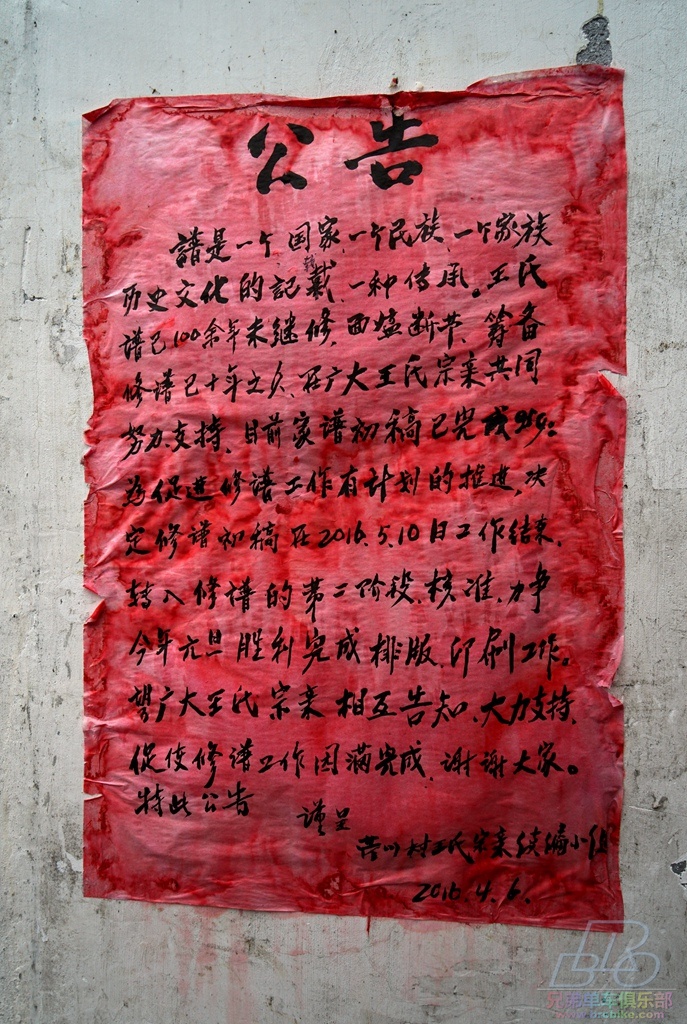 公告
譜是一个国家、一个民族、一个家族
历史文化的記載、一种传承。王氏
譜已100余年未继修、面临断节、筹备
修谱已十年之久、在广大王氏宗亲共同
努力支持、目前家谱初稿已完成95%:
为促进修谱工作有计划的推进、决
定修谱初稿在2016.5.10日工作结束、
转入修谱的第二阶段、核准、力争
今年元旦胜利完成排版、印刷工作。
望广大王氏宗亲相互告知、大力支持、
促使修谱工作圆满完成、谢谢大家。
特此公告
谨呈
川村王氏宗亲续谱小组
2016.4.6.
兄弟单车俱乐部